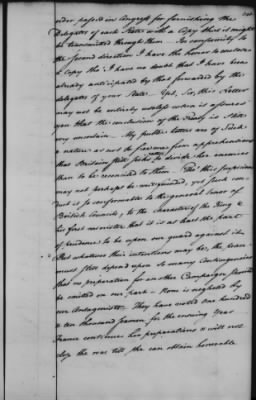 order passed in Congress for furnishing the
Delegates of each State with a Copy that it might
be transmitted through them. In conformity to
the second direction I have the honor to enclose
a Copy tho' I have no doubt that I have been
already anticipated by that forwarded by the
delegates of your State. Yet, Sir, this Letter
may not be entirely useless when it assures
you that the conclusion of the Treaty is still
very uncertain. My public Letters are of such
a nature as not to free me from apprehensions
that Britain still seeks to divide her enemies
than to be reconciled to them. Tho' this suspicion
may not perhaps be well grounded, yet such con-
duct is so conformable to the general tenor of
British Councils, to the character of the King &
his first minister that it is at least the part
of prudence to be upon our guard against it.
But whatever their intentions may be, the peace
must still depend upon so many Contingencies
that no preparation for another Campaign should
be omitted on our part. None is neglected by
our Antagonists. They have voted one hundred
& ten thousand seamen for the ensuing Year
France continues her preparations & will not
lay the war till she can obtain honorable